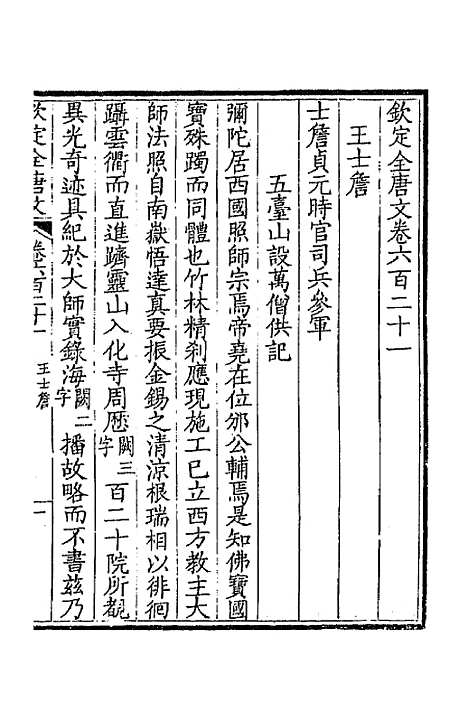 欽定全唐文卷六百二十一
王士詹
士詹貞元時官司兵參軍
五臺山設萬僧供記
彌陀居西國照師宗焉帝堯在位邠公輔焉是知佛寶國
寶殊躅而同體也竹林精刹應現施工已立西方教主大
師法照自南嶽悟達真要振金錫之清涼根瑞相以徘徊
躡雲衢而直進躋靈山入化寺周歷闕三字百二十院所覩
異光奇迹具紀於大師實錄海闕二字播故略而不書茲乃
欽定全唐文 卷六百二十一 王士詹 一